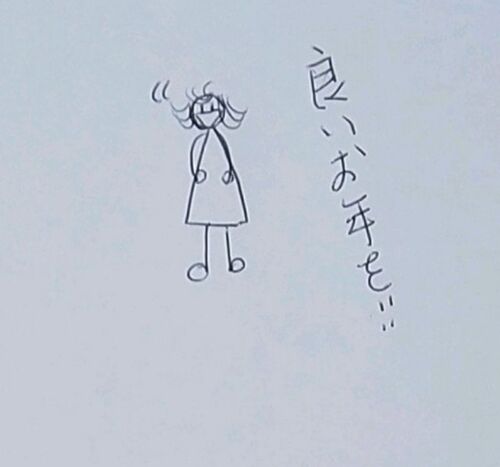 良いお年を!!